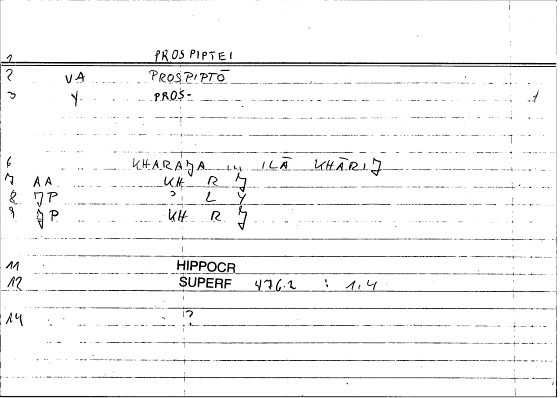 1 PROSPIPTEI
2 VA PROSPIPTŌ
3 Y PROS- 1
6 KHARAJA ... ILĀ KHĀRIJ
7 AA KH R J
8 JP ʾ L Y
9 JP KH R J
11 HIPPOCR
12 SUPERF 476.2 : 1.4
14 ?